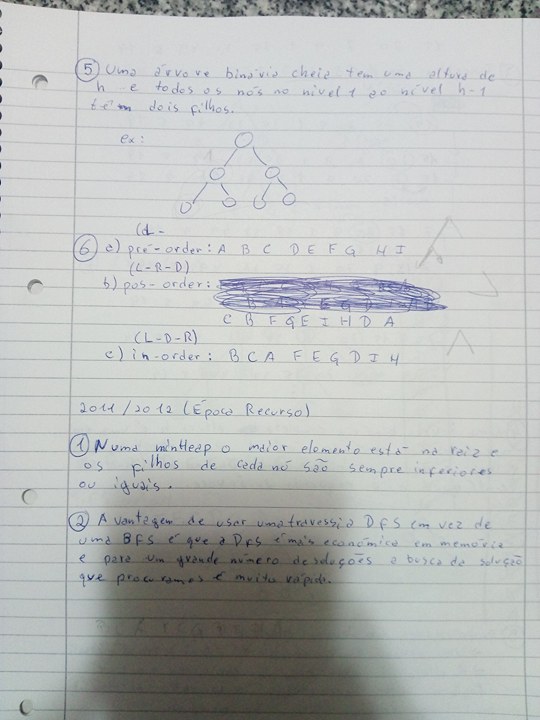 ⑤ Uma árvore binária cheia tem uma altura de
h e todos os nós no nível 1 ao nível h-1
têm dois filhos.
ex:
(d-
⑥ a) pré-order: A B C D E F G H I
(L-R-D)
b) pos-order:
C B F G E I H D A
(L-D-R)
c) in-order: B C A F E G D I H
2011/2012 (Época Recurso)
① Numa minHeap o maior elemento está na raiz e
os filhos de cada nó são sempre inferiores
ou iguais.
② A vantagem de usar uma travessia DFS em vez de
uma BFS é que a DFS é mais económica em memória
e para um grande número de soluções a busca da solução
que procuramos é muito rápida.